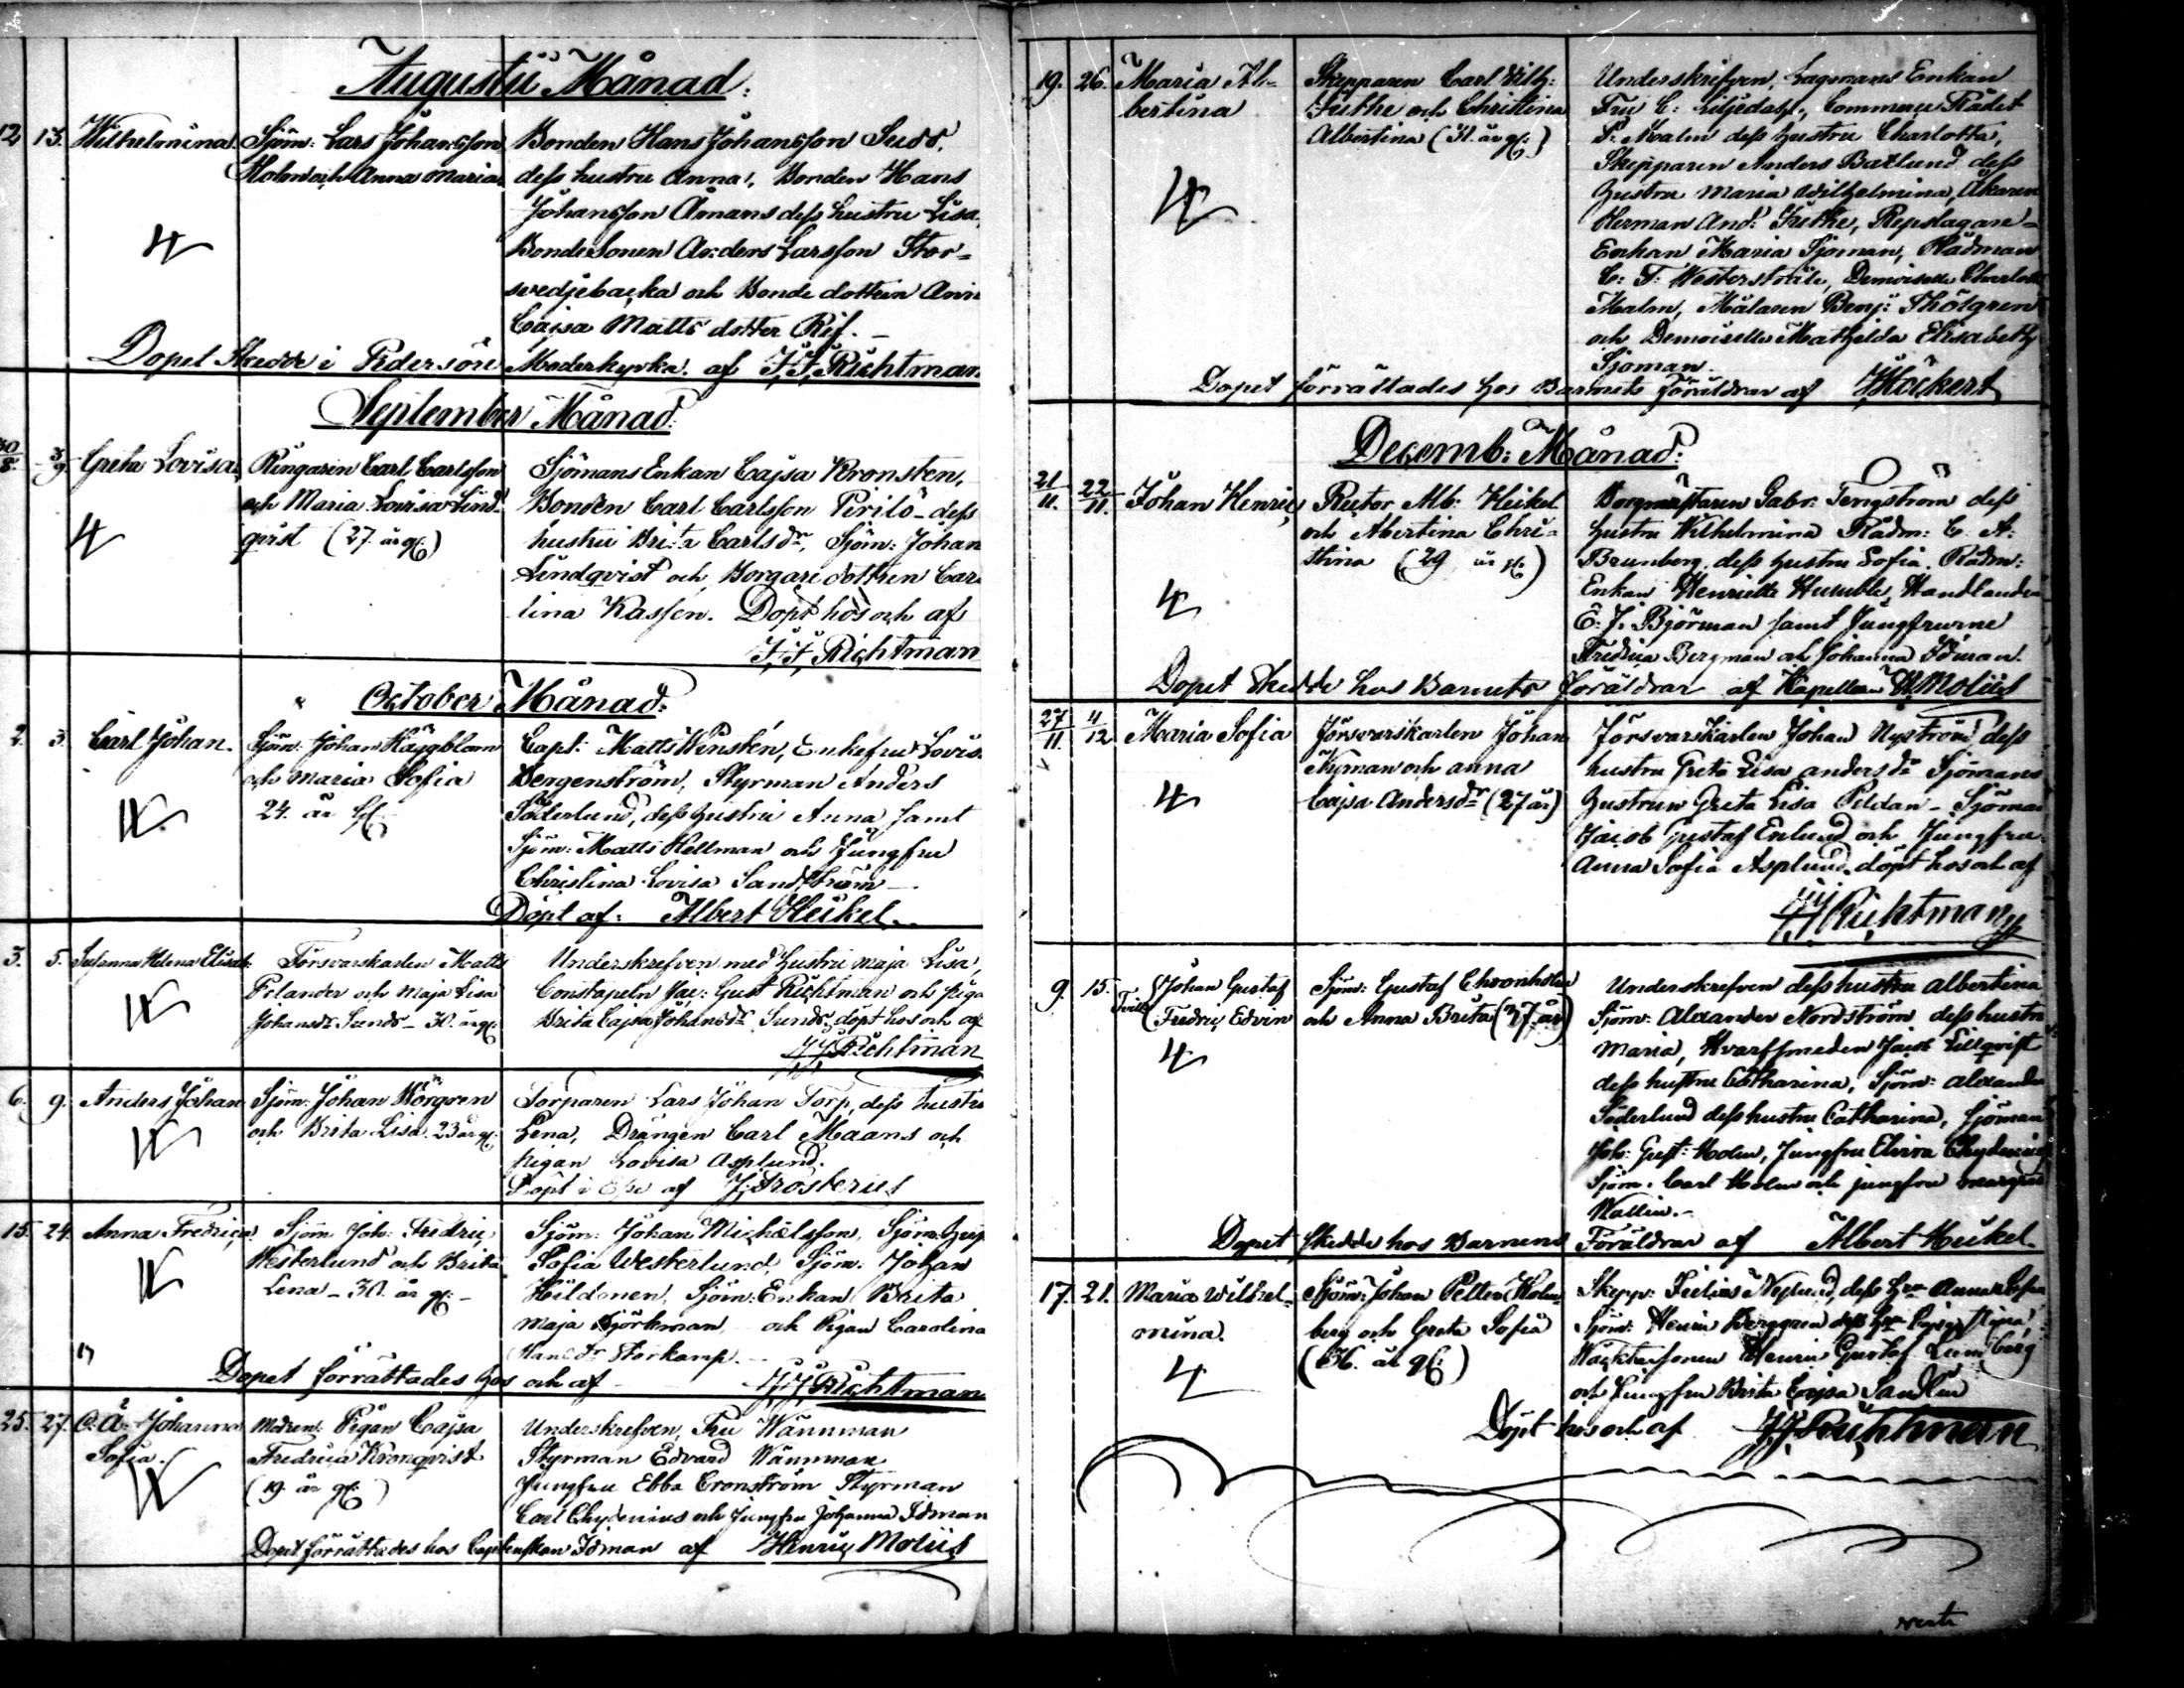 Augustii Månad:
12 13. Wilhelmina. Sjöm: Lars Johansson Bonden Hans Johansson Sudd.
Holm och Anna Maria dess hustru Anna, Bonden Hans
Johansson Åmans dess hustru Lisa,
BondeSonen Anders Larsson Stor-
svedjebacka och Bonde dottren Ann
Cajsa Matts dotter Rif. -
Dopet skedde i Pedersöre Moderkyrka af J.J. Richtman
September Månad:
30/8. 3/9. Greta Lovisa Ringaren Carl Carlsson SjömansEnkan Cajsa Kronsten,
och Maria Lovisa Lind- Bonden Carl Carlsson Pirilö - dess
qvist (27. år gl:) hustru Brita Carlsdr, Sjöm: Johan
Lindqvist och Borgare dottren Car
lina Kassén. Döpt hos och af
J.J. Richtman
October Månad.
2. 3. Carl Johan. Sjöm: Johan Häggblom Capt: Matts Winstén, Enkefru Lovis.
och Maria Sofia Bergenström, Styrman Anders
24. år gl. Söderlund, dess hustru Anna samt
Sjöm: Matts Hellman och Jungfru
Christina Lovisa Sandström -
Döpt af: Albert Heikel.
3. 5. Susanna Helena Elisab: Försvarskarlen Matts Underskrefven med hustru Maja Lisa,
Pelander och Maja Lisa Constapeln Jac: Gust Richtman och piga
Johansdr Sunds - 30. år gl: Brita Cajsa Johansdr Sunds, döpt hos och af
J.J. Richtman
6. 9. Anders Johan Sjöm: Johan Norgren Torparen Lars Johan Torp, dess hustru
och Brita Lisa. 23 år gl: Lena, Drängen Carl Maans och
pigan Lovisa Asplund.
Döpt i Esse af J. Frosterus
15. 24. Anna Fredrica Sjöm Joh: Fredric Sjöm: Johan Michelsson, Sjöm:
Westerlund och Brita Sofia Westerlund, Sjöm: Johan
Lena - 30. år gl: - Hildonen, Sjöm: Enkan Brita
Maja Björkman, och Pigan Carolina
Hansdr Storkamp. -
Dopet förrättades hos och af J.J. Richtman
25. 27. O. Ä. Johanna Modren: Pigan Cajsa Underskrefven, Fru Wännman
Sofia. Fredrica Kronqvist Styrman Edvard Wännman
(19. år gl:) Jungfru Ebba Cronström Styrman
Carl Chydenius och Jungfru Johanna Idman
Dopet förrättades hos Captenskan Idman af Henric Molüs
19. 26. Maria Al- Skepparen Carl Wilh: Underskrifven, Lagmans Enkan
bertina Juthe och Christina Fru C: Liljedahl, Commerce Rådet
Albertina (31. år gl:) P. Malm dess hustru Charlotta,
Skepparen Anders Baxlund dess
hustru Maria Wilhelmina, Åkaren
Herman And: Juthe, Repslagare-
Enkan Maria Sjöman, Rådman
C: F: Westerstråle, Demoiselle Charlott
Malm, Målaren Benj: Thölgren
och Demoiselle Mathilda Elisabeth
Sjöman.
Dopet förrättades hos Barnets föräldrar af Höckert
Decemb: Månad:
21/11. 22/11. Johan Henric Rector Alb: Heikel Borgmästaren Gabr: Tengström dess
och Albertina Chri- hustru Wilhelmina Rådm: C. A:
stina (29 år gl:) Brunberg, dess hustru Sofia. Rådm:
Enkan Henriette Humble, Handlanden
E. J. Björman samt Jungfrurne
Fredrica Bergman och Johanna Idman.
Dopet skedde hos Barnets föräldrar af Kapellan H. Molüs
27/11. 4/12 Maria Sofia Försvarskarlen Johan Försvarskarlen Johan Nyström dess
Nyman och Anna hustru Greta Lisa Andersdr Sjömans
Cajsa Andersdr (27 år) hustrun Greta Lisa Peldan - Sjöman
Jacob Gustaf Enlund och Jungfru
Anna Sofia Asplund, döpt hos och af
J.J. Richtman
9. 15. Tvill Johan Gustaf Sjöm: Gustaf Chronholm Underskrefven dess hustru Albertina
Fredric Edvin och Anna Brita (37. år) Sjöm: Alexander Nordström dess hustru
Maria, Kvarfsmeden Jacob Lillqvist
dess hustru Catharina, Sjöm: Alexander
Söderlund dess hustru Catharina, Sjöman
Joh: Gust: Holm, Jungfru Elvira Chydenius
Sjöm: Carl Holm och jungfru
Wallin. -
Dopet skedde hos Barnens Föräldrar af Albert Heikel.
17. 21. Maria Wilhel- Sjöm: Johan Petter Holm- Skepp: Julius Nylund, dess Anna
mina. berg och Greta Sofia Sjöm: Henric Berggren dess Cajsa Stina
(36. år gl:) Wäcktarsonen Henric Gustaf Lundberg
och Jungfru Brita Cajsa Sandlin
Döpt hos och af J.J. Richtman